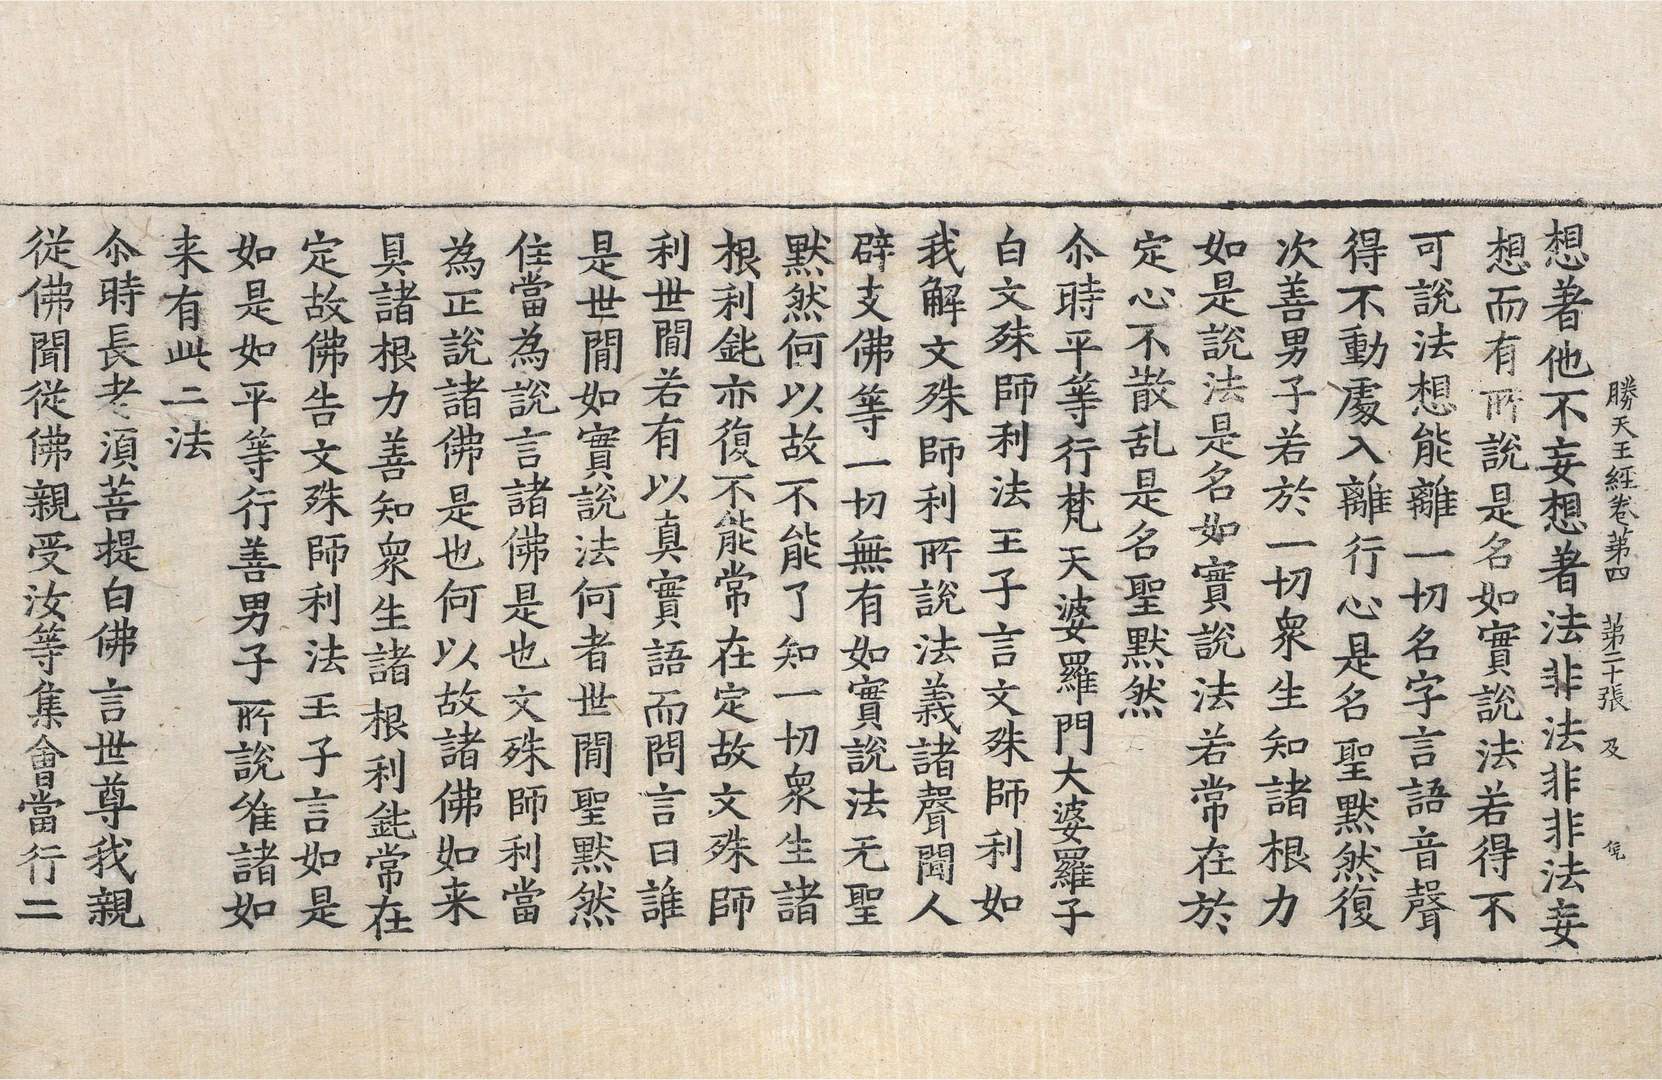 勝天王經卷第四 第二十張 及
想著他不妄想著法非法非非法妄
想而有所說是名如實說法若得不
可說法想能離一切名字言語音聲
得不動處入離行心是名聖默然復
次善男子若於一切衆生知諸根力
如是說法是名如實說法若常在於
定心不散乱是名聖默然
尒時平等行梵天婆羅門大婆羅子
白文殊師利法王子言文殊師利如
我解文殊師利所說法義諸聲聞人
辟支佛等一切無有如實說法无聖
默然何以故不能了知一切衆生諸
根利鈍亦復不能常在定故文殊師
利世間若有以真實語而問言曰誰
是世間如實說法何者世間聖默然
住當為說言諸佛是也文殊師利當
為正說諸佛是也何以故諸佛如来
具諸根力善知衆生諸根利鈍常在
定故佛告文殊師利法王子言如是
如是如平等行善男子所說唯諸如
来有此二法
尒時長老湏菩提白佛言世尊我親
從佛聞從佛親受汝等集會當行二